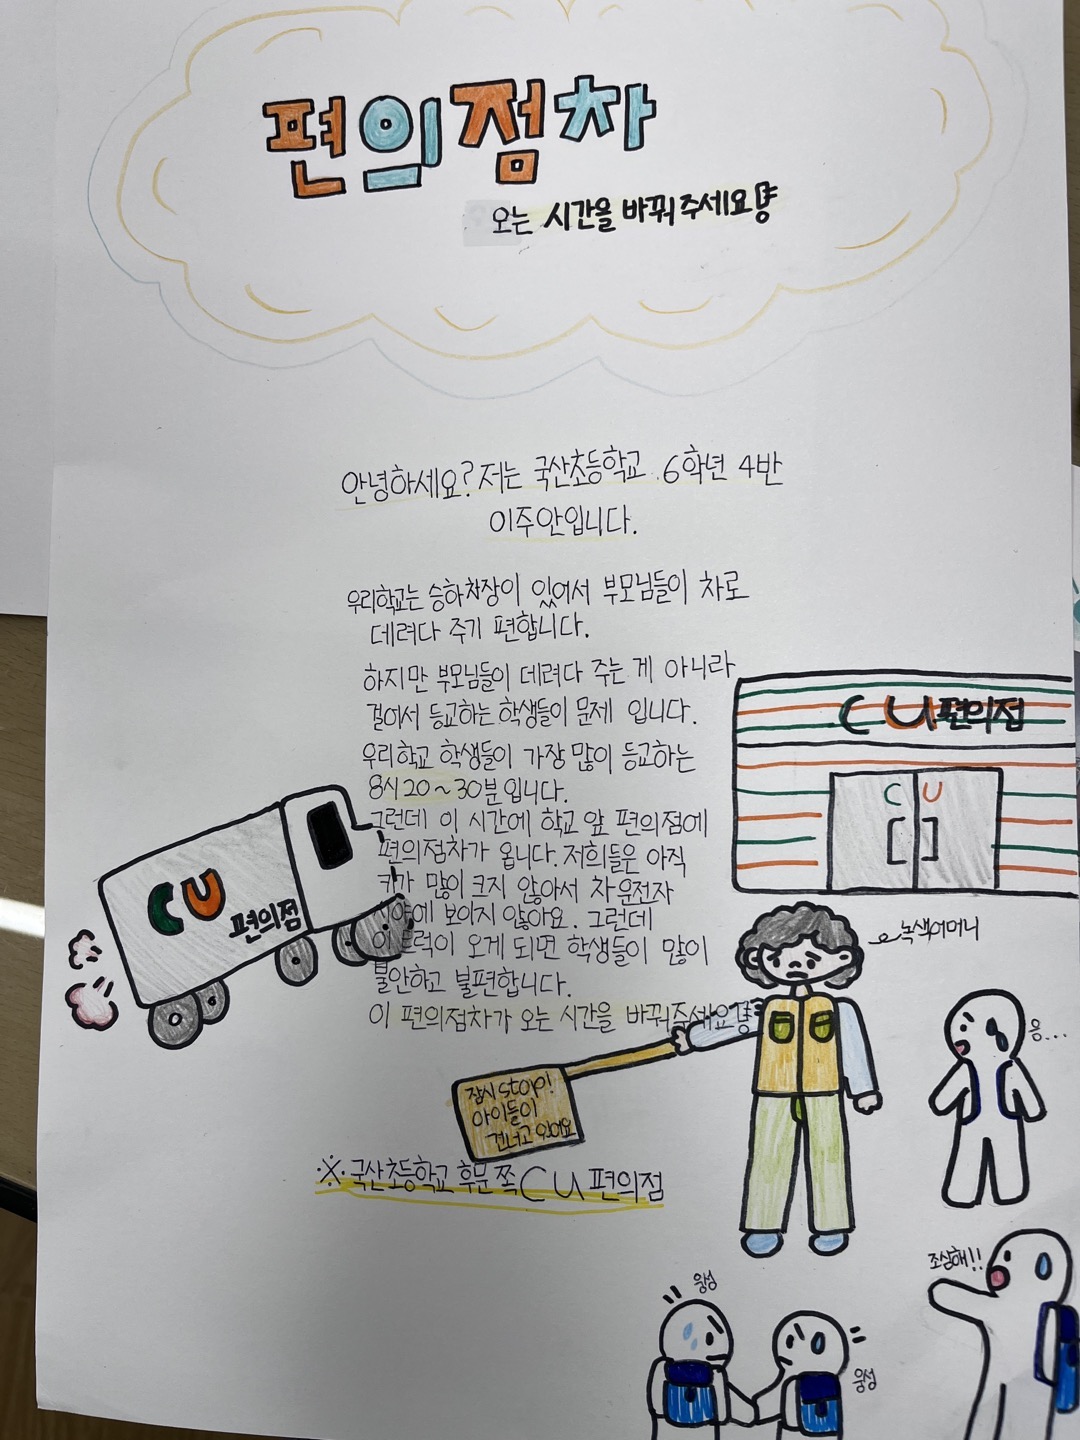 편의점차
오는 시간을 바꿔주세요!!
안녕하세요? 저는 국산초등학교 6학년 4반
이주안입니다.
우리학교는 승하차장이 있어서 부모님들이 차로
데려다 주기 편합니다.
하지만 부모님들이 데려다 주는 게 아니라
걸어서 등교하는 학생들이 문제 입니다.
우리학교 학생들이 가장 많이 등교하는
8시 20~30분입니다.
그런데 이 시간에 학교 앞 편의점에
편의점차가 옵니다. 저희들은 아직
키가 많이 크지 않아서 차 운전자
시야에 보이지 않아요. 그런데
이 트럭이 오게 되면 학생들이 많이
불안하고 불편합니다.
이 편의점차가 오는 시간을 바꿔주세요!!
CU편의점
C U
CU
편의점
녹색어머니
잠시 stop!
아이들이
건너고 있어요
응...
※국산초등학교 후문 쪽 CU 편의점
조심해!!
웅성
웅성